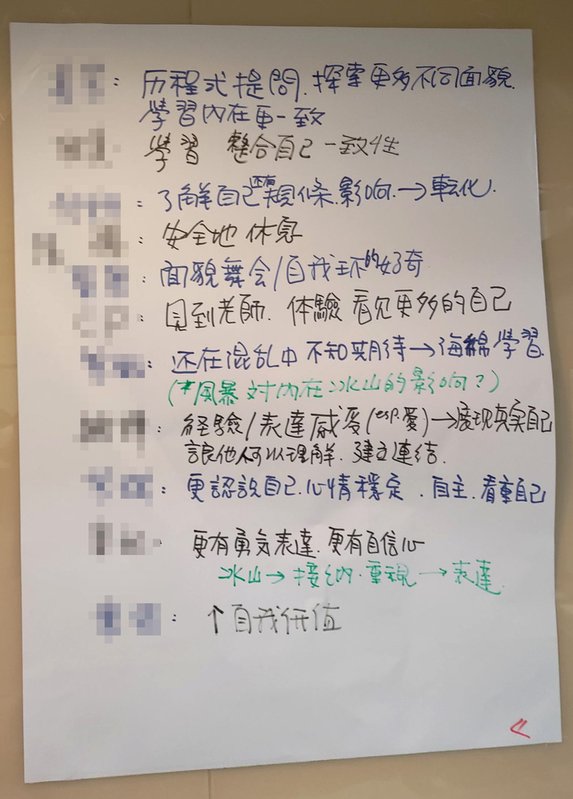 ：历程式提問．探索更多不同面貌．
學習內在更一致
學習 整合自己一致性
：了解自己 規條．影响．→転化．
：安全地休息
：面貌舞会/自我环的好奇
：見到老師．体驗 看見更多的自己
：还在混乱中 不知期待→海綿學習．
(*风暴対內在冰山的影响？)
：経驗/表達感受(esp.愛)→展现真实自己
讓他人可以理解．建立連结．
：更認識自己．心情穩定．自主．看重自己
：更有勇気表達．更有自信心
冰山→接納．重視→表達．
：↑自我価值